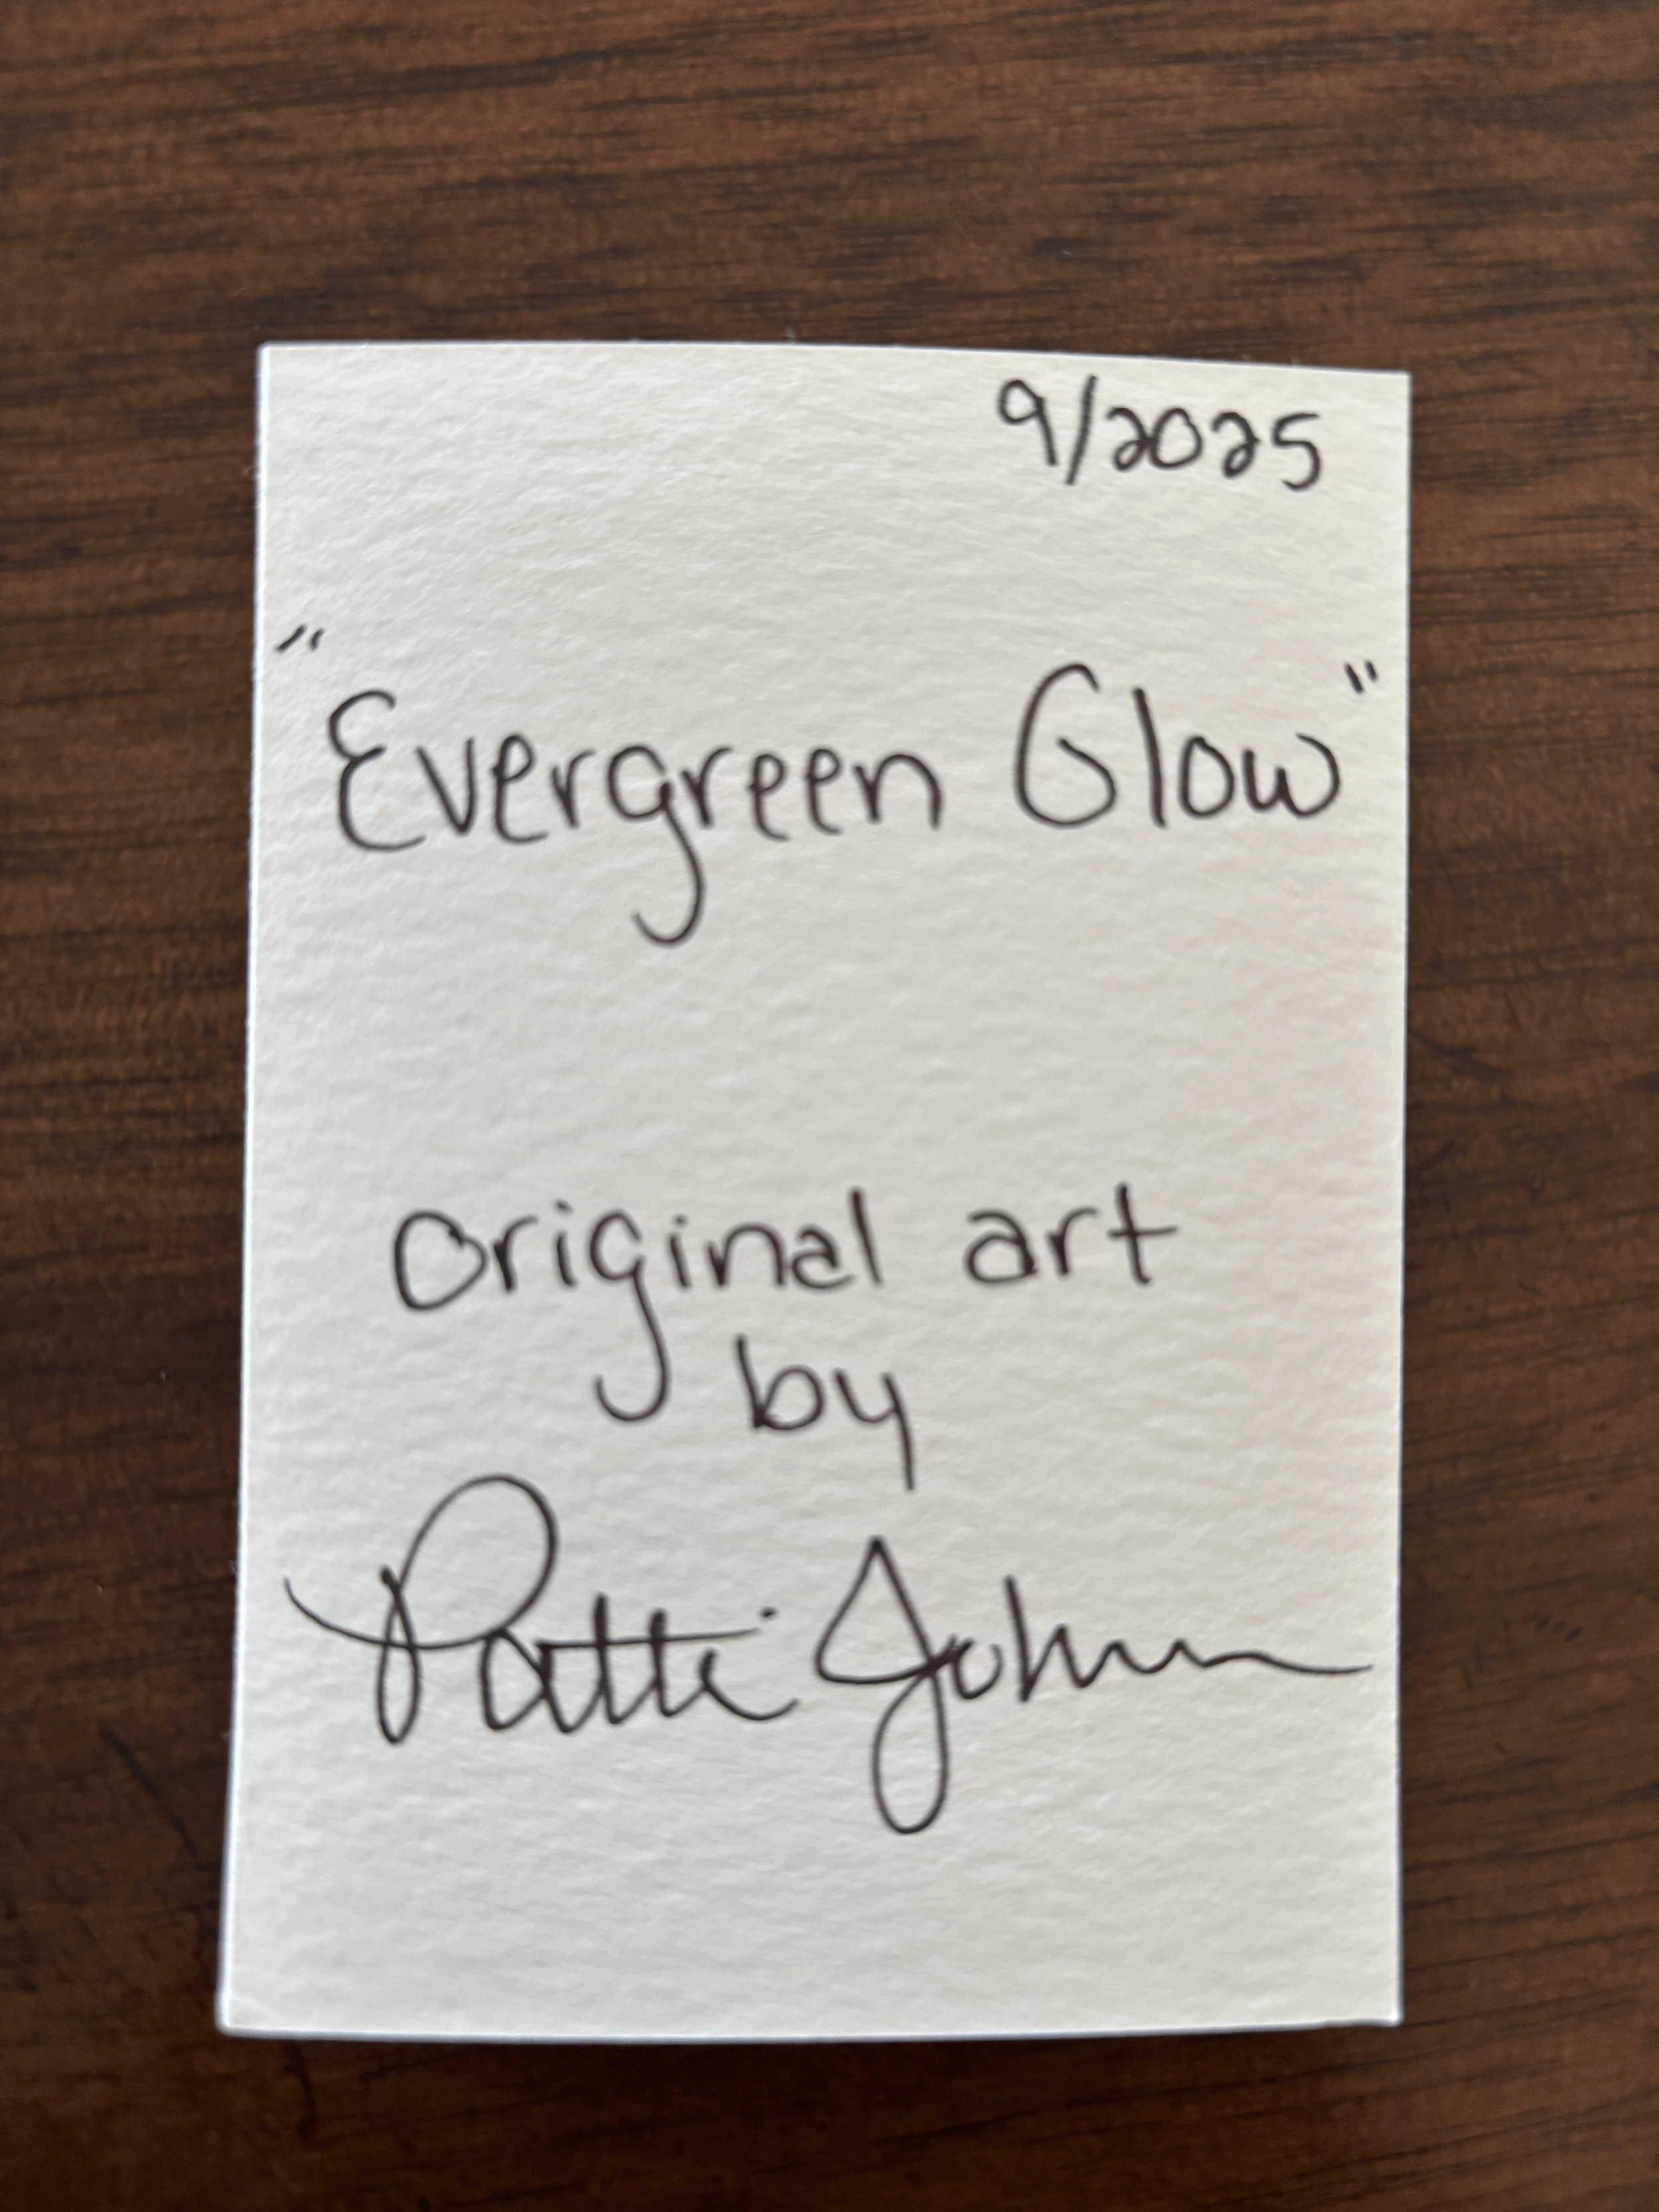 9/2025
"Evergreen Glow"
original art
by
Patti John